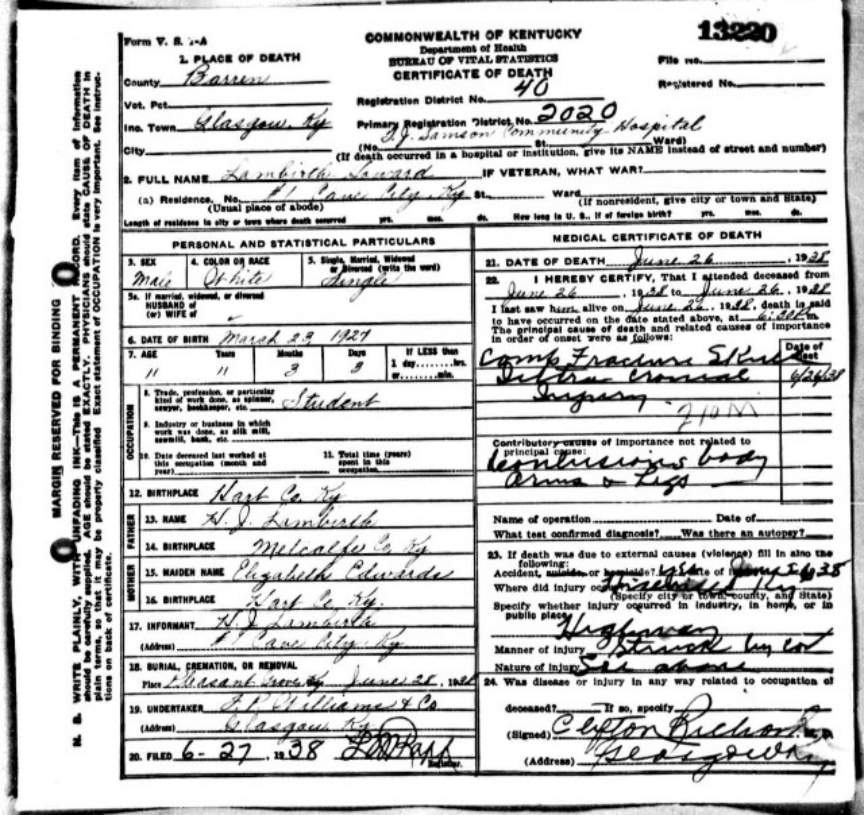 13220
Form V. S. 1-A
COMMONWEALTH OF KENTUCKY
Department of Health
BUREAU OF VITAL STATISTICS
CERTIFICATE OF DEATH
File no.
Registered No.
1. PLACE OF DEATH
County Barren
Vot. Pct.
Inc. Town Glasgow, Ky
City
Registration District No. 40
Primary Registration District No. 2020
(No. T. J. Samson Community Hospital St. Ward)
(If death occurred in a hospital or institution, give its NAME instead of street and number)
2. FULL NAME Lambirth IF VETERAN, WHAT WAR?
(a) Residence. No. Cave City, Ky St. Ward
(Usual place of abode) (If nonresident, give city or town and State)
Length of residence in city or town where death occurred yrs. mos. ds. How long in U. S., if of foreign birth? yrs. mos. ds.
PERSONAL AND STATISTICAL PARTICULARS
3. SEX
Male
4. COLOR OR RACE
White
5. Single, Married, Widowed or Divorced (write the word)
Single
5a. If married, widowed, or divorced
HUSBAND of
(or) WIFE of
6. DATE OF BIRTH March 23, 1927
7. AGE Years Months Days If LESS than
1 day hrs.
or min.
11 11 3 3
OCCUPATION
8. Trade, profession, or particular kind of work done, as spinner, sawyer, bookkeeper, etc. Student
9. Industry or business in which work was done, as silk mill, sawmill, bank, etc.
10. Date deceased last worked at this occupation (month and year)
11. Total time (years) spent in this occupation
12. BIRTHPLACE Hart Co. Ky
FATHER
13. NAME H. J. Lambirth
14. BIRTHPLACE Metcalfe Co. Ky
MOTHER
15. MAIDEN NAME Elizabeth Edwards
16. BIRTHPLACE Hart Co. Ky.
17. INFORMANT H. J. Lambirth
(Address) Cave City, Ky
18. BURIAL, CREMATION, OR REMOVAL
Place Pleasant Grove, Ky June 28, 1938
19. UNDERTAKER Williams & Co
(Address) Glasgow Ky
20. FILED 6-27, 1938
Registrar.
MEDICAL CERTIFICATE OF DEATH
21. DATE OF DEATH June 26, 1938
22. I HEREBY CERTIFY, That I attended deceased from
June 26, 1938 to June 26, 1938
I last saw him alive on June 26, 1938, death is said
to have occurred on the date stated above, at m.
The principal cause of death and related causes of importance
in order of onset were as follows:
Date of onset
Comp Fracture Skull
6/26/38
Injury
210M
Contributory causes of importance not related to
principal cause:
body
Arms & Legs
Name of operation Date of
What test confirmed diagnosis? Was there an autopsy?
23. If death was due to external causes (violence) fill in also the
following:
Accident, suicide, or homicide? yes Date of June 26 38
Where did injury occur
(Specify city or town, county, and State)
Specify whether injury occurred in industry, in home, or in
public place
Highway
Manner of injury Struck by car
Nature of injury See above
24. Was disease or injury in any way related to occupation of
deceased? If so, specify
(Signed) Clifton M. D.
(Address) Glasgow Ky
MARGIN RESERVED FOR BINDING
N. B. WRITE PLAINLY, WITH UNFADING INK—THIS IS A PERMANENT RECORD. Every item of information
should be carefully supplied. AGE should be stated EXACTLY. PHYSICIANS should state CAUSE OF DEATH in
plain terms, so that it may be properly classified. Exact statement of OCCUPATION is very important. See instruc-
tions on back of certificate.